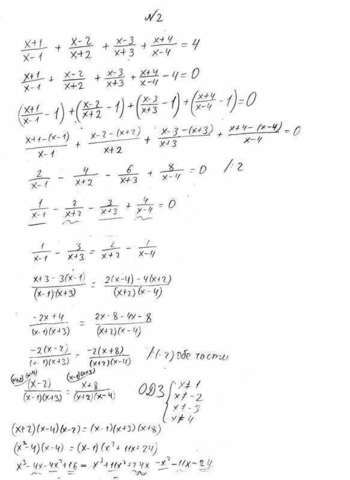 №2
(x+1)/(x-1) + (x-2)/(x+2) + (x-3)/(x+3) + (x+4)/(x-4) = 4
(x+1)/(x-1) + (x-2)/(x+2) + (x-3)/(x+3) + (x+4)/(x-4) - 4 = 0
((x+1)/(x-1) - 1) + ((x-2)/(x+2) - 1) + ((x-3)/(x+3) - 1) + ((x+4)/(x-4) - 1) = 0
(x+1-(x-1))/(x-1) + (x-2-(x+2))/(x+2) + (x-3-(x+3))/(x+3) + (x+4-(x-4))/(x-4) = 0
2/(x-1) - 4/(x+2) - 6/(x+3) + 8/(x-4) = 0 /:2
1/(x-1) - 2/(x+2) - 3/(x+3) + 4/(x-4) = 0
1/(x-1) - 3/(x+3) = 2/(x+2) - 4/(x-4)
(x+3-3(x-1))/((x-1)(x+3)) = (2(x-4)-4(x+2))/((x+2)(x-4))
(-2x+4)/((x-1)(x+3)) = (2x-8-4x-8)/((x+2)(x-4))
(-2(x-2))/((x-1)(x+3)) = (-2(x+8))/((x+2)(x-4)) /:(-2) обе части
(x-2)/((x-1)(x+3)) = (x+8)/((x+2)(x-4)) ОДЗ { x≠1
x≠-2
x≠-3
x≠4
(x+2)(x-4)(x-2) = (x-1)(x+3)(x+8)
(x²-4)(x-4) = (x-1)(x²+11x+24)
x³-4x-4x²+16 = x³+11x²+24x-x²-11x-24